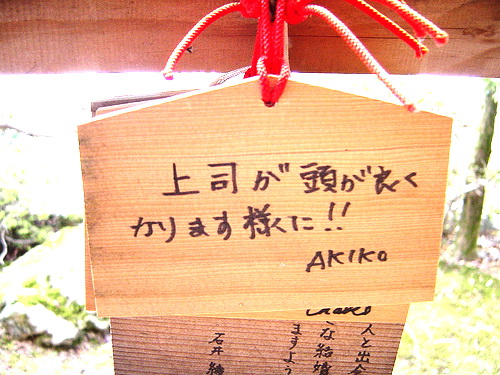 上司が頭が良く
なります様に!!
AKIKO
人と出会
な結婚
ますよう
石井